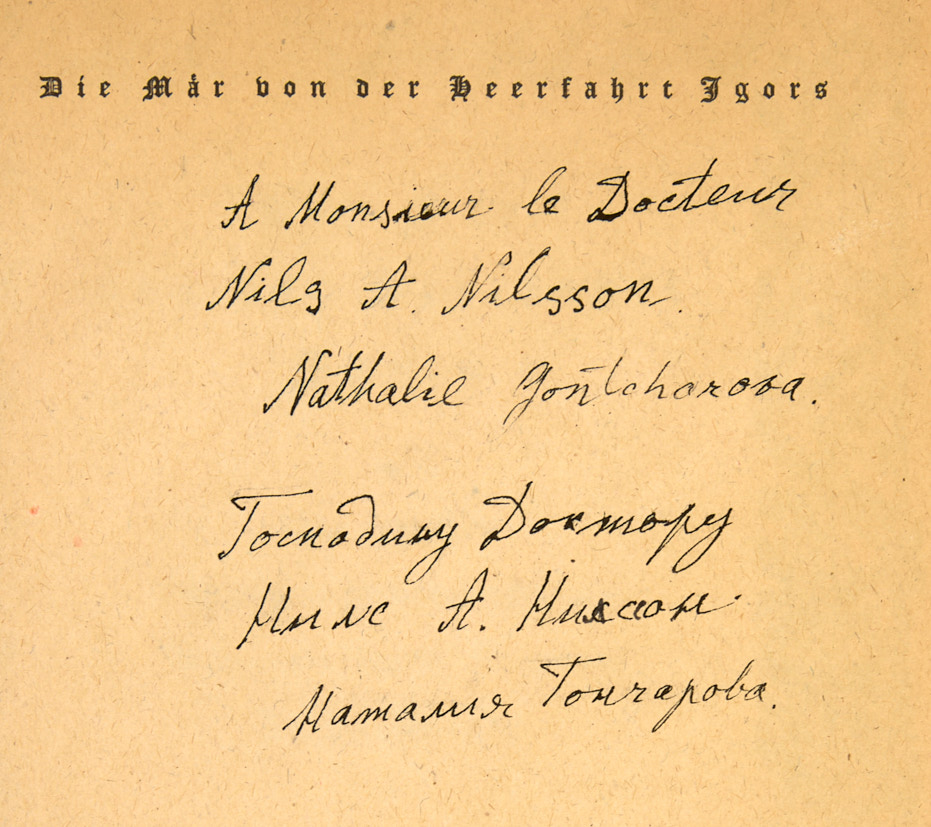 Die Mär von der Heerfahrt Igors
A Monsieur le Docteur
Nils A. Nilsson.
Nathalie Gontcharova.
Господину Доктору
Нилс А. Нилссон.
Наталия Гончарова.